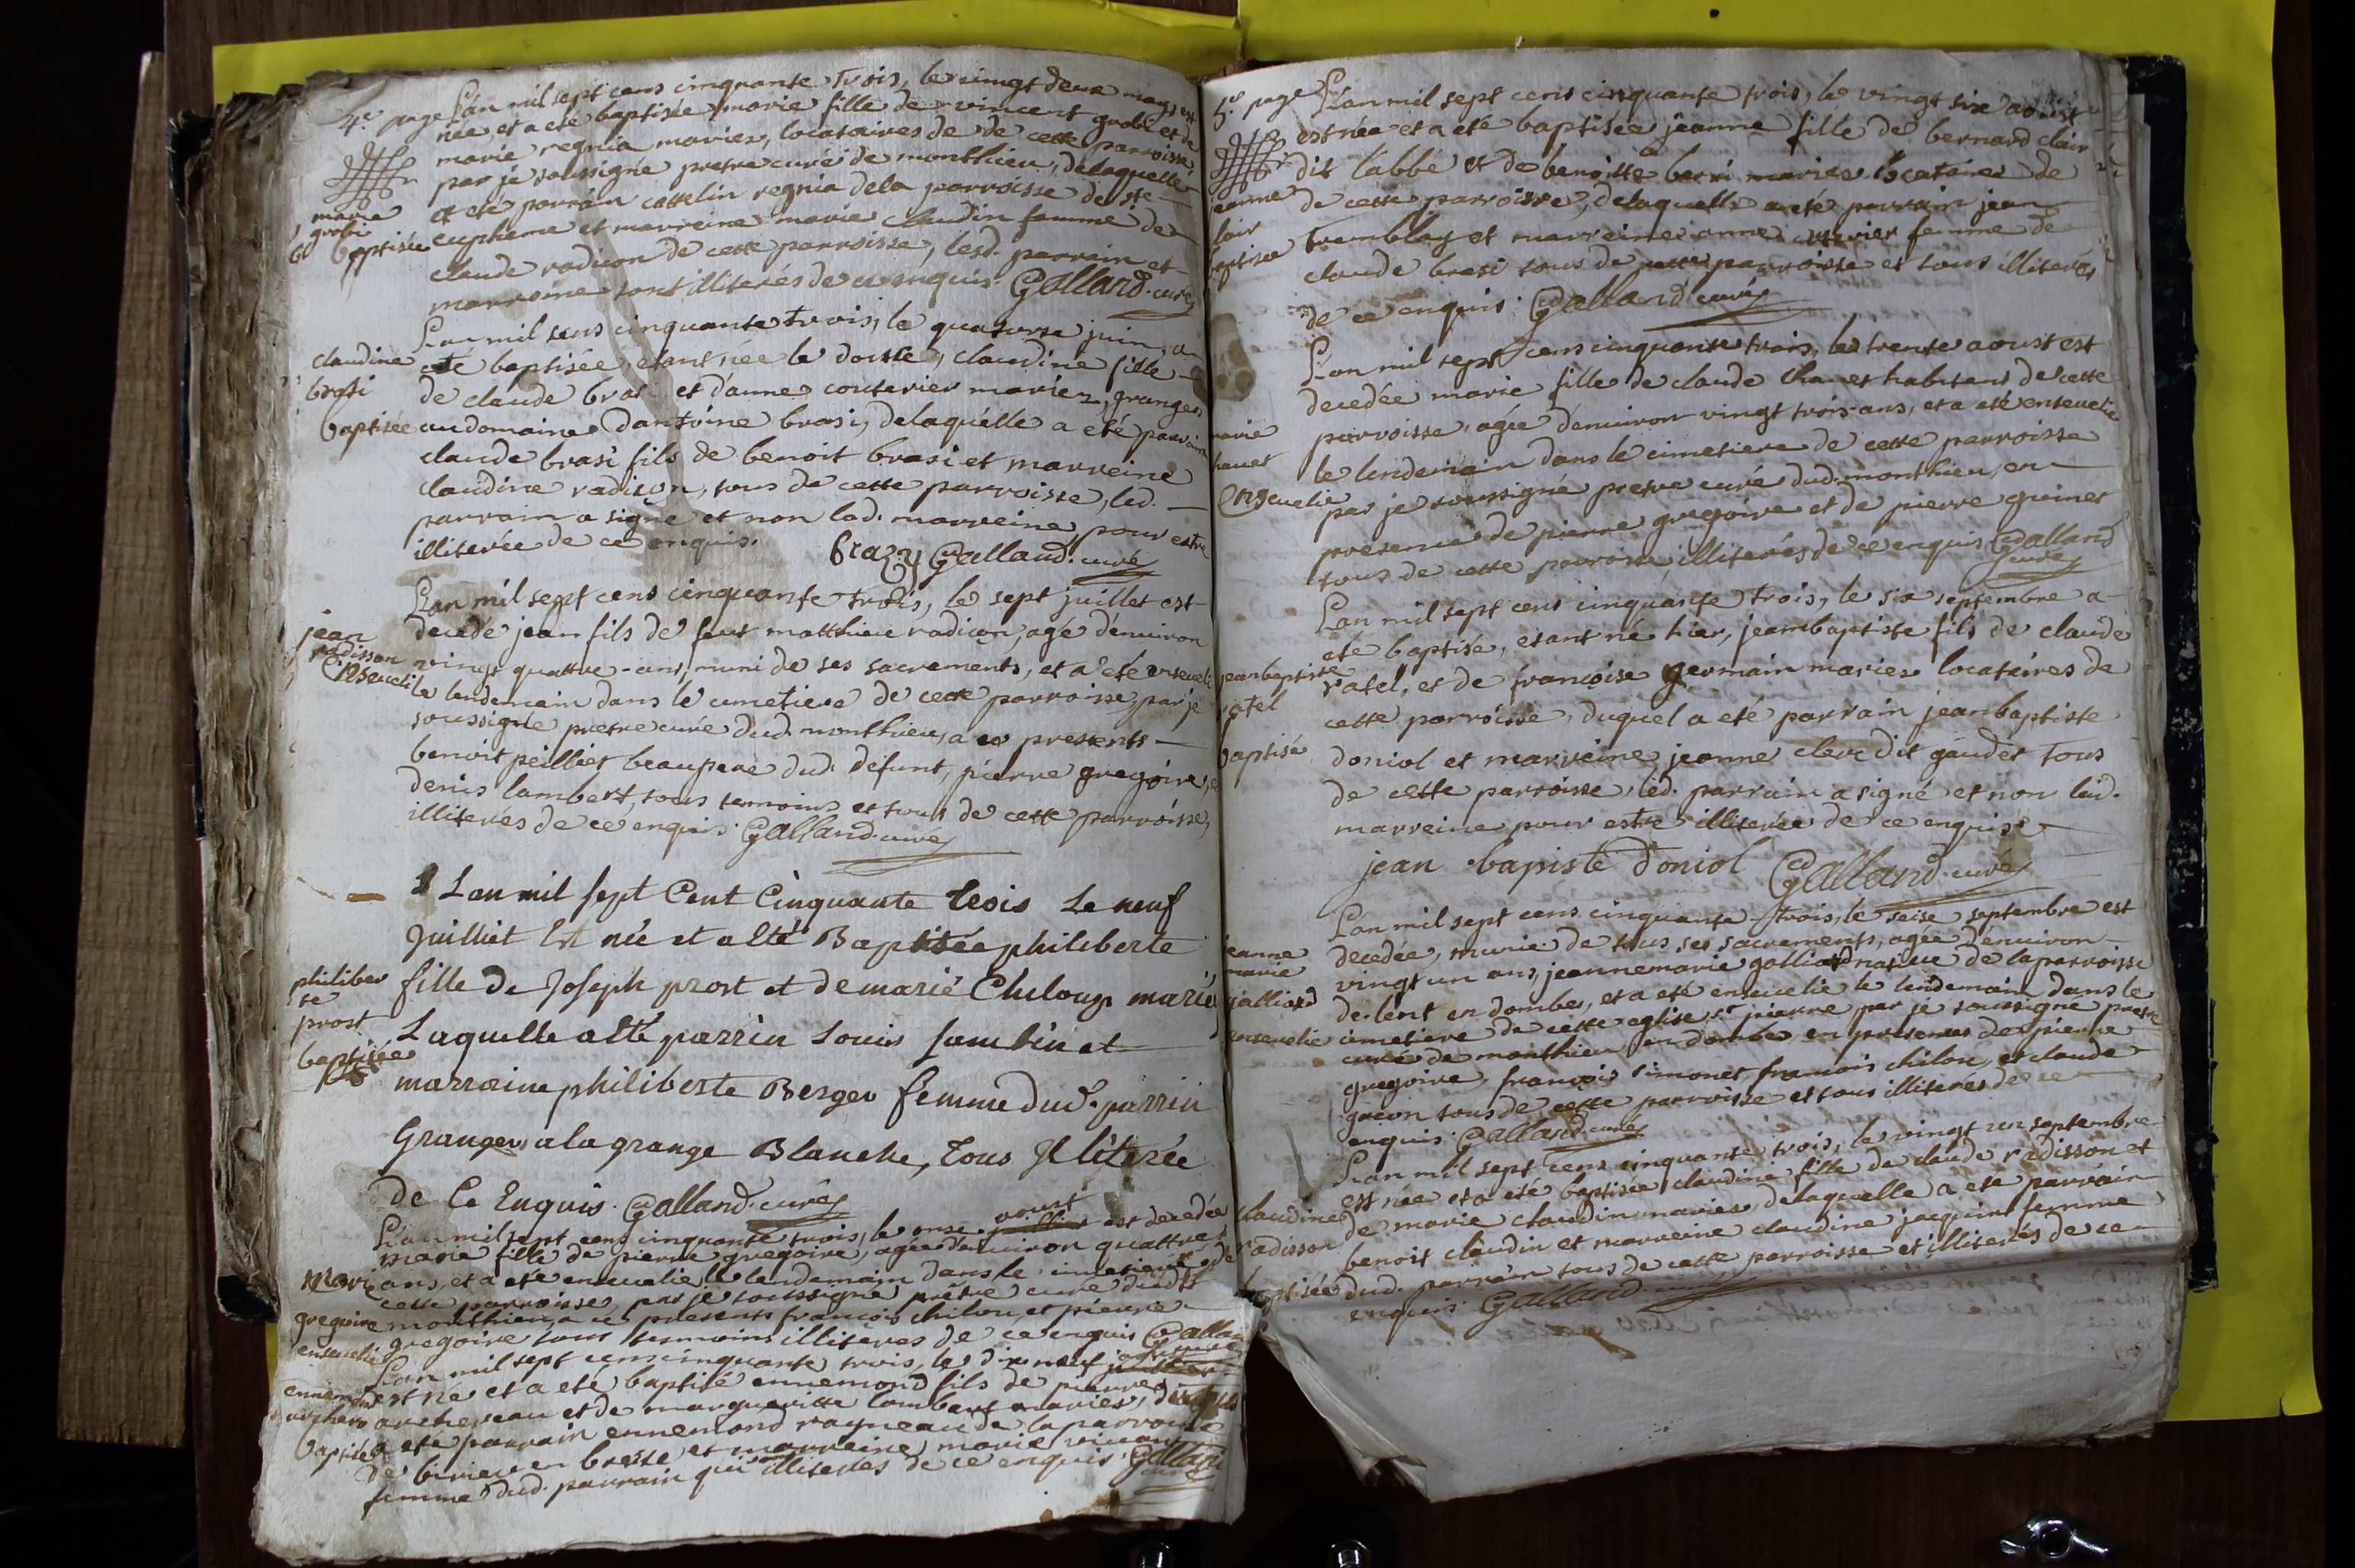 4.e page L'an mil sept cens cinquante trois, le vingt deux mays est
née et a eté baptisée marie fille de vincent grobi et de
marie regnia mariés, locataires de de cette parroisse
par je soussigné prestre curé de monthieu, delaquelle
et eté parrain cattelin regnia dela parroisse de ste
eupheme et marreine marie claudin femme de
claude radicon de cette parroisse, lesd. parrain et
marreine sont illiterés de ce enquis. Galland curé
marie
grobi
baptisée
L'an mil sens cinquante trois, le quatorse juin, a
eté baptisée, etant née le dousse, claudine fille
de claude brasi et d'anne couturier mariez, granger
au domaine d'antoine brasi, delaquelle a eté parrain
claude brasi fils de benoit brasi et marreine
claudine radison, tous de cette parroisse, led.
parrain a signé et non lad. marreine, pour estre
illiterée de ce enquis. brazy Galland curé
claudine
brasi
baptisée
L'an mil sept cens cinquante trois, le sept juillet est
decedé jean fils de feut matthieu radicon, agé d'environ
vingt quattre ans, muni de ses sacrements, et a eté enseveli
le lendemain dans le cimetiere de cette parroisse par je
soussigné prestre curé dud. monthieu, a ce presents
benoit peillier beaupere dud. defunt, pierre gregoire,
denis lambert, tous temoins et tous de cette parroisse,
illiteres de ce enquis. Galland curé
jean
radisson
Enseveli
L'an mil sept Cent Cinquante trois Le neuf
Juilliet Est née et a Eté Baptisée philiberte
fille de Joseph prost et de marié Cheloup mariés
Laquelle a Eté parrin Louis Lambin et
marraine philiberte Berger femme dud. parrin
Granger a la grange Blanche, Tous Illiterée
de Ce Enquis. Galland curé
philiber
te
prost
baptisée
L'an mil sept cens cinquante trois, le onse aoust est decedée
marie fille de pierre gregoire, agée d'environ quattre
ans, et a eté ensevelie le lendemain dans le cimetiere de
cette parroisse par je soussigné prêtre curé dudit
monthieu, a ce presents françois chilon, et pierre
gregoire tous temoins illiteres de ce enquis Galland
Marie
gregoire
ensevelie
L'an mil sept cens cinquante trois, le dix neuf
est né et a eté baptisé ennemond fils de pierre
archereau et de margueritte lombart mariés, duquel
a eté parrain ennemond rayneau de la parroisse
de birieu en bresse, et marreine marie vincent
femme dud. parrain qui illiteres de ce enquis Galland
ennemond
archero
baptisé
5.e page L'an mil sept cens cinquante trois, le vingt six aoust
est née et a eté baptisée jeanne fille de bernard clair
dit l'abbé et de benoitte berri mariée locataires de
de cette parroisse, delaquelle a eté parrain jean
tremblay et marreine anne cuturier femme de
claude brasi tous de cette parroisse et tous illiterés
de ce enquis. Galland curé
jeanne
clair
baptisée
L'an mil sept cens cinquante trois, le trente aoust est
decedée marie fille de claude chanet habitant de cette
parroisse, agée d'environ vingt trois ans, et a eté ensevelie
le lendemain dans le cimetiere de cette parroisse
par je soussigné prestre curé dud. monthieu, en
presence de pierre gregoire et de pierre guinet
tous de cette parroisse, illiterés de ce enquis Galland
curé
marie
chanet
Ensevelie
L'an mil sept cens cinquante trois, le six septembre a
eté baptisé, etant né hier, jeanbaptiste fils de claude
ratel, et de françoise germain mariez locataires de
cette parroisse, duquel a eté parrain jeanbaptiste
doniol et marreine jeanne clerc dit gaudet tous
de cette parroisse, led. parrain a signé et non lad.
marreine pour estre illiterée de ce enquise
jean bapiste doniol Galland curé
jeanbaptiste
ratel
baptisé
L'an mil sept cens cinquante trois, le seise septembre est
decedée, munie de tous ses sacrements, agée d'environ
vingt un ans, jeannemarie galliard native de la parroisse
de lent en dombes, et a eté ensevelie le lendemain dans le
cimetiere de cette eglise st pierre par je soussigné prestre
curé de monthieu en dombes en presence de pierre
gregoire, françois simonet, françois chilon, et claude
gacon tous de cette parroisse et tous illiteres de ce
enquis. Galland curé
jeanne
marie
galliard
ensevelie
L'an mil sept cens cinquante trois, le vingt un septembre
est née et a eté baptisée claudine fille de claude radisson et
de marie claudin mariés, delaquelle a eté parrain
benoit claudin et marreine claudine jacquin femme
dud. parrain tous de cette parroisse et illiterés de ce
enquis. Galland curé
claudine
radisson
baptisée